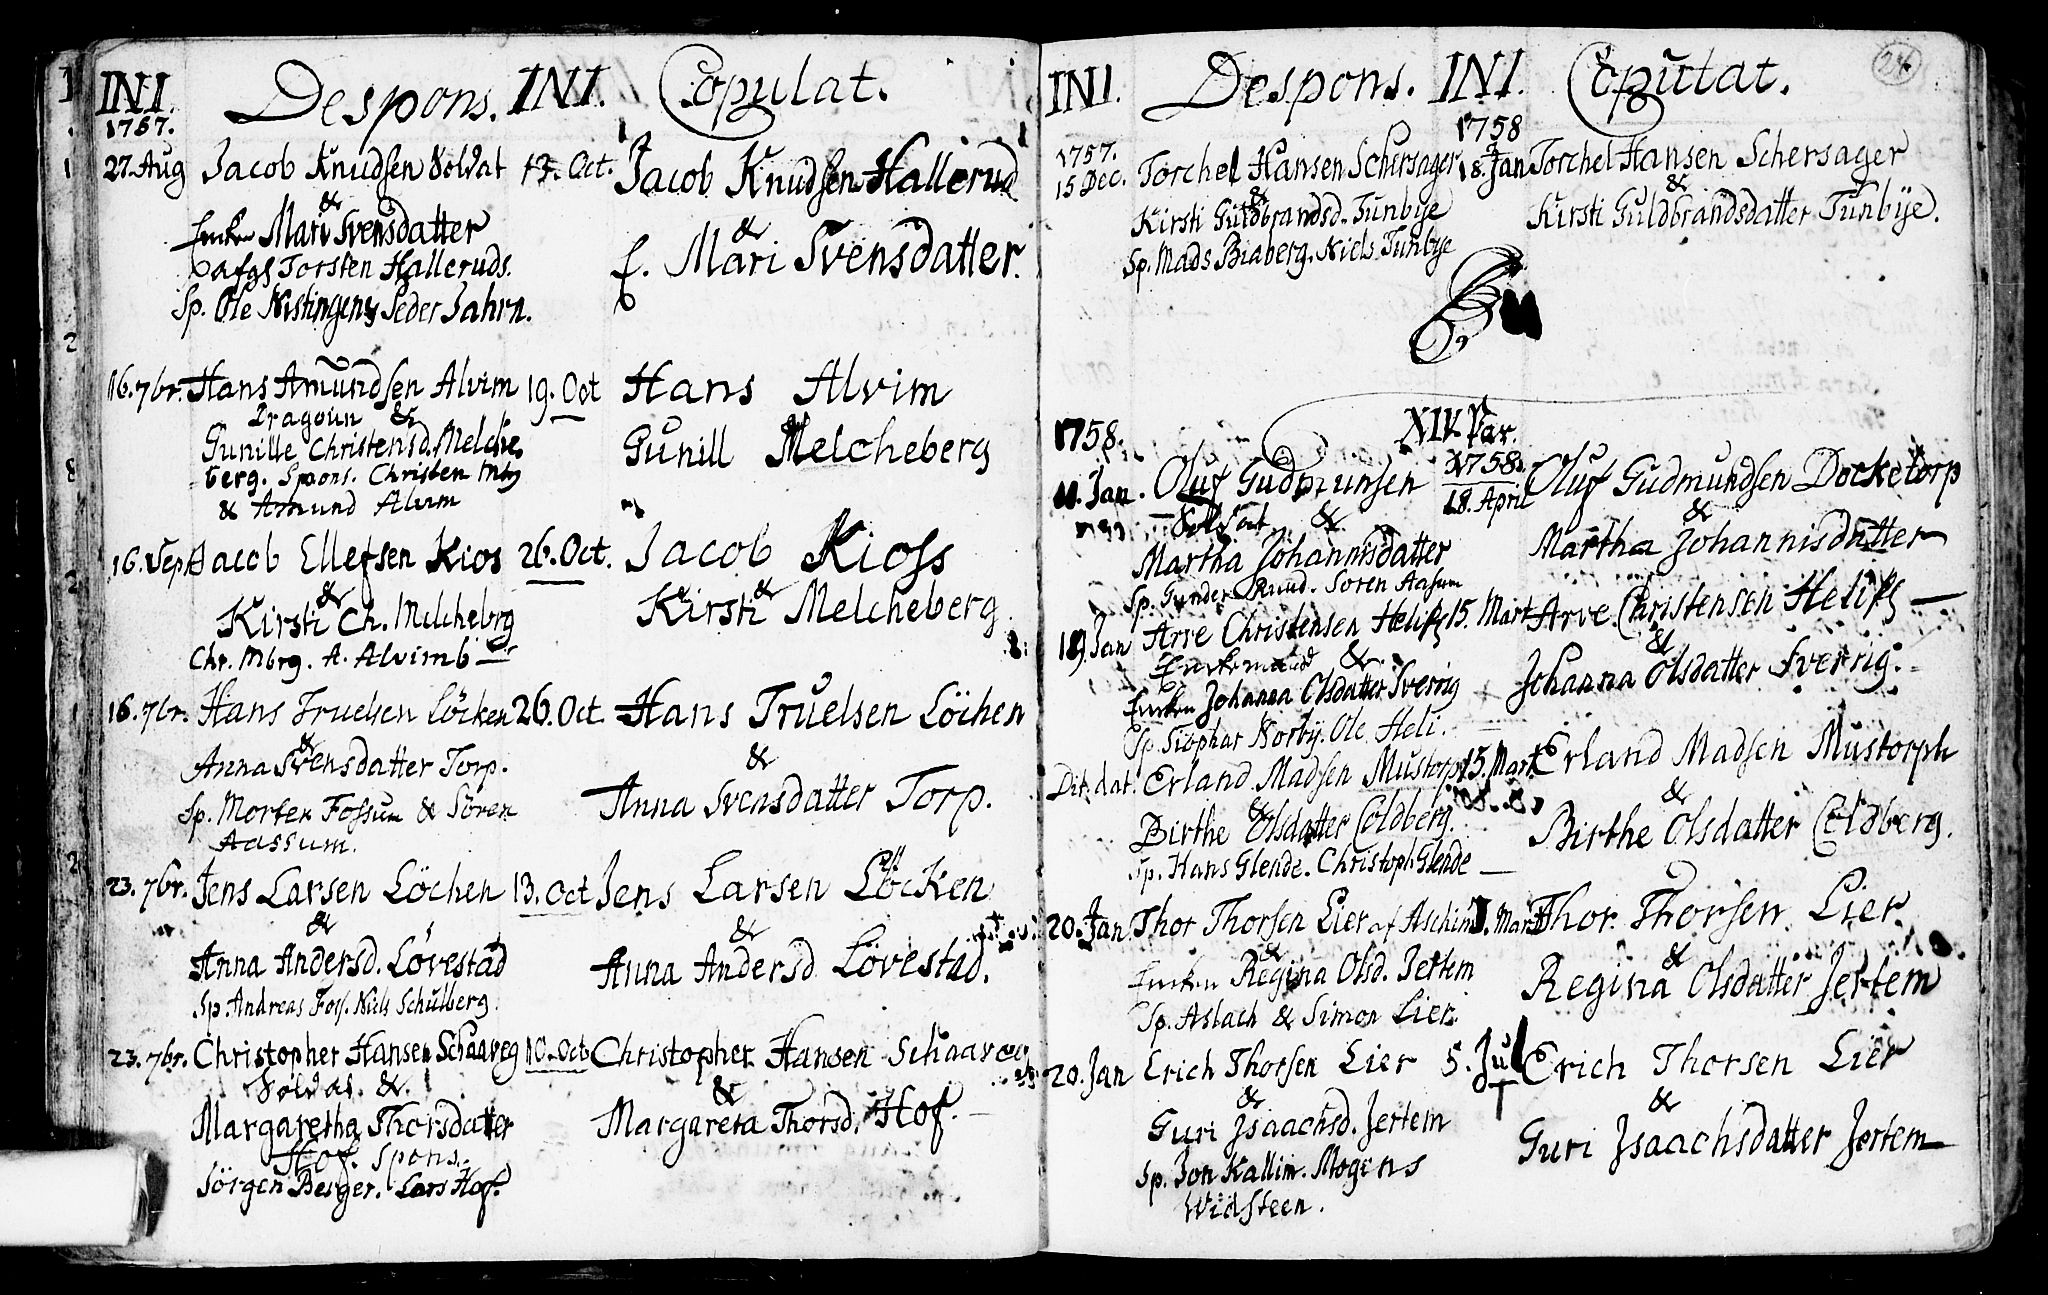 INI. Despons. INI. Copulat.
1757.
27. Aug Jacob Knudsen Soldat 13. Oct. Jacob Knudsen Hallerud
&
Enken Mari Svensdatter
&
afgs Torsten Halleruds.
E. Mari Svensdatter.
Sp. Ole Peder Jahrn.
16. 7br. Hans Amundsen Alvim 19. Oct Hans Alvim
Dragoun &
Gunille Christensd. Melche
Gunill Melcheberg
berg. Spons. Christen Mbg
& Amund Alvim
16. Sept Jacob Ellefsen Kios 26. Oct. Jacob Kioss
&
Kirsti Ch. Melchebrg
&
Kirsti Melcheberg
Chr. Mbrg. A. Alvimb
16. 7br. Hans Truelsen Löcken 26. Oct Hans Truelsen Löchen
&
Anna Svensdatter Torp.
&
Anna Svensdatter Torp.
Sp. Morten Fossum & Sören
Aassum.
23. 7br. Jens Larsen Löchen 13. Oct Jens Larsen Löcken
&
Anna Andersd. Lövestad
&
Anna Andersd Lövestad.
Sp. Andreas Fos. Niels Schulberg.
23. 7br. Christopher Hansen Schaareg 10. Oct Christopher Hansen Schaareg
Soldat. &
Margaretha Thorsdatter
&
Margareta Thorsd. Hof.
Hof. Spons.
Jörgen Berger. Lars Hof.
INI. Despons. INI. Copulat.
24
1757. 1758
15 Dec. Torchel Hansen Schersager 18. Jan Torchel Hansen Schersager
&
Kirsti Guldbrandsd. Tunbye
&
Kirsti Guldbrandsdatter Tunbye.
Sp. Mads Biaberg. Niels Tunbye
XIV. Par.
1758. 1758.
11. Jan. Oluf Gudmunsen 18. April Oluf Gudmundsen Docketorp
Soldat &
Martha Johannisdatter
&
Martha Johannisdatter
Sp. Gunder Ruud. Sören Aasum
19. Jan Arve Christensen Helis 15. Mart Arve Christensen Helis
Enkemand &
Enken Johanna Olsdatter Sverrig
&
Johanna Olsdatter Sverrig.
Sp. Siophar Norby. Ole Heli.
Dit. dat. Erland Madsen Mustorp 15. Mart. Erland Madsen Mustorph
&
Birthe Olsdatter Coldberg.
&
Birthe Olsdatter Coldberg.
Sp. Hans Glende. Christoph Glende
20. Jan Thor Thorsen Lier af Aschim 1. Mart Thor Thorsen Lier
&
Enken Regina Olsd. Jertem
&
Regina Olsdatter Jertem
Sp. Aslach & Simon Lier.
20. Jan Erich Thorsen Lier 5. Jul Erich Thorsen Lier
&
Guri Isaachsd. Jertem
&
Guri Isaachsdatter Jertem
Sp. Jon Kallim. Mogens
Widsteen.